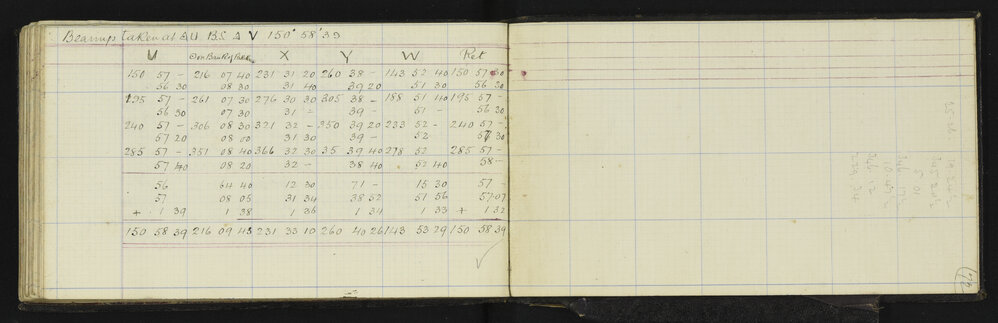 Bearings taken at ΔU B.S. Δ V 150° 58' 39
U X Y W Ret
150 57 – 216 07 40 231 31 20 260 38 – 143 52 40 150 57 30
56 30 08 30 31 40 39 20 51 30 56 30
195 57 – 261 07 30 276 30 30 305 38 – 188 51 40 195 57 –
56 30 07 30 31 – 39 – 51 – 56 30
240 57 – 306 08 30 321 32 – 350 39 20 233 52 – 240 57 –
57 20 08 00 31 30 39 – 52 – 57 30
285 57 – 351 08 40 366 32 30 35 39 40 278 52 285 57 –
57 40 08 20 32 – 38 40 52 40 58 –
56 64 40 12 30 71 – 15 30 57 –
57 08 05 31 34 38 52 51 56 57 07
+ 1 39 1 38 1 36 1 34 1 33 + 1 32
150 58 39 216 09 43 231 33 10 260 40 26 143 53 29 150 58 39
72